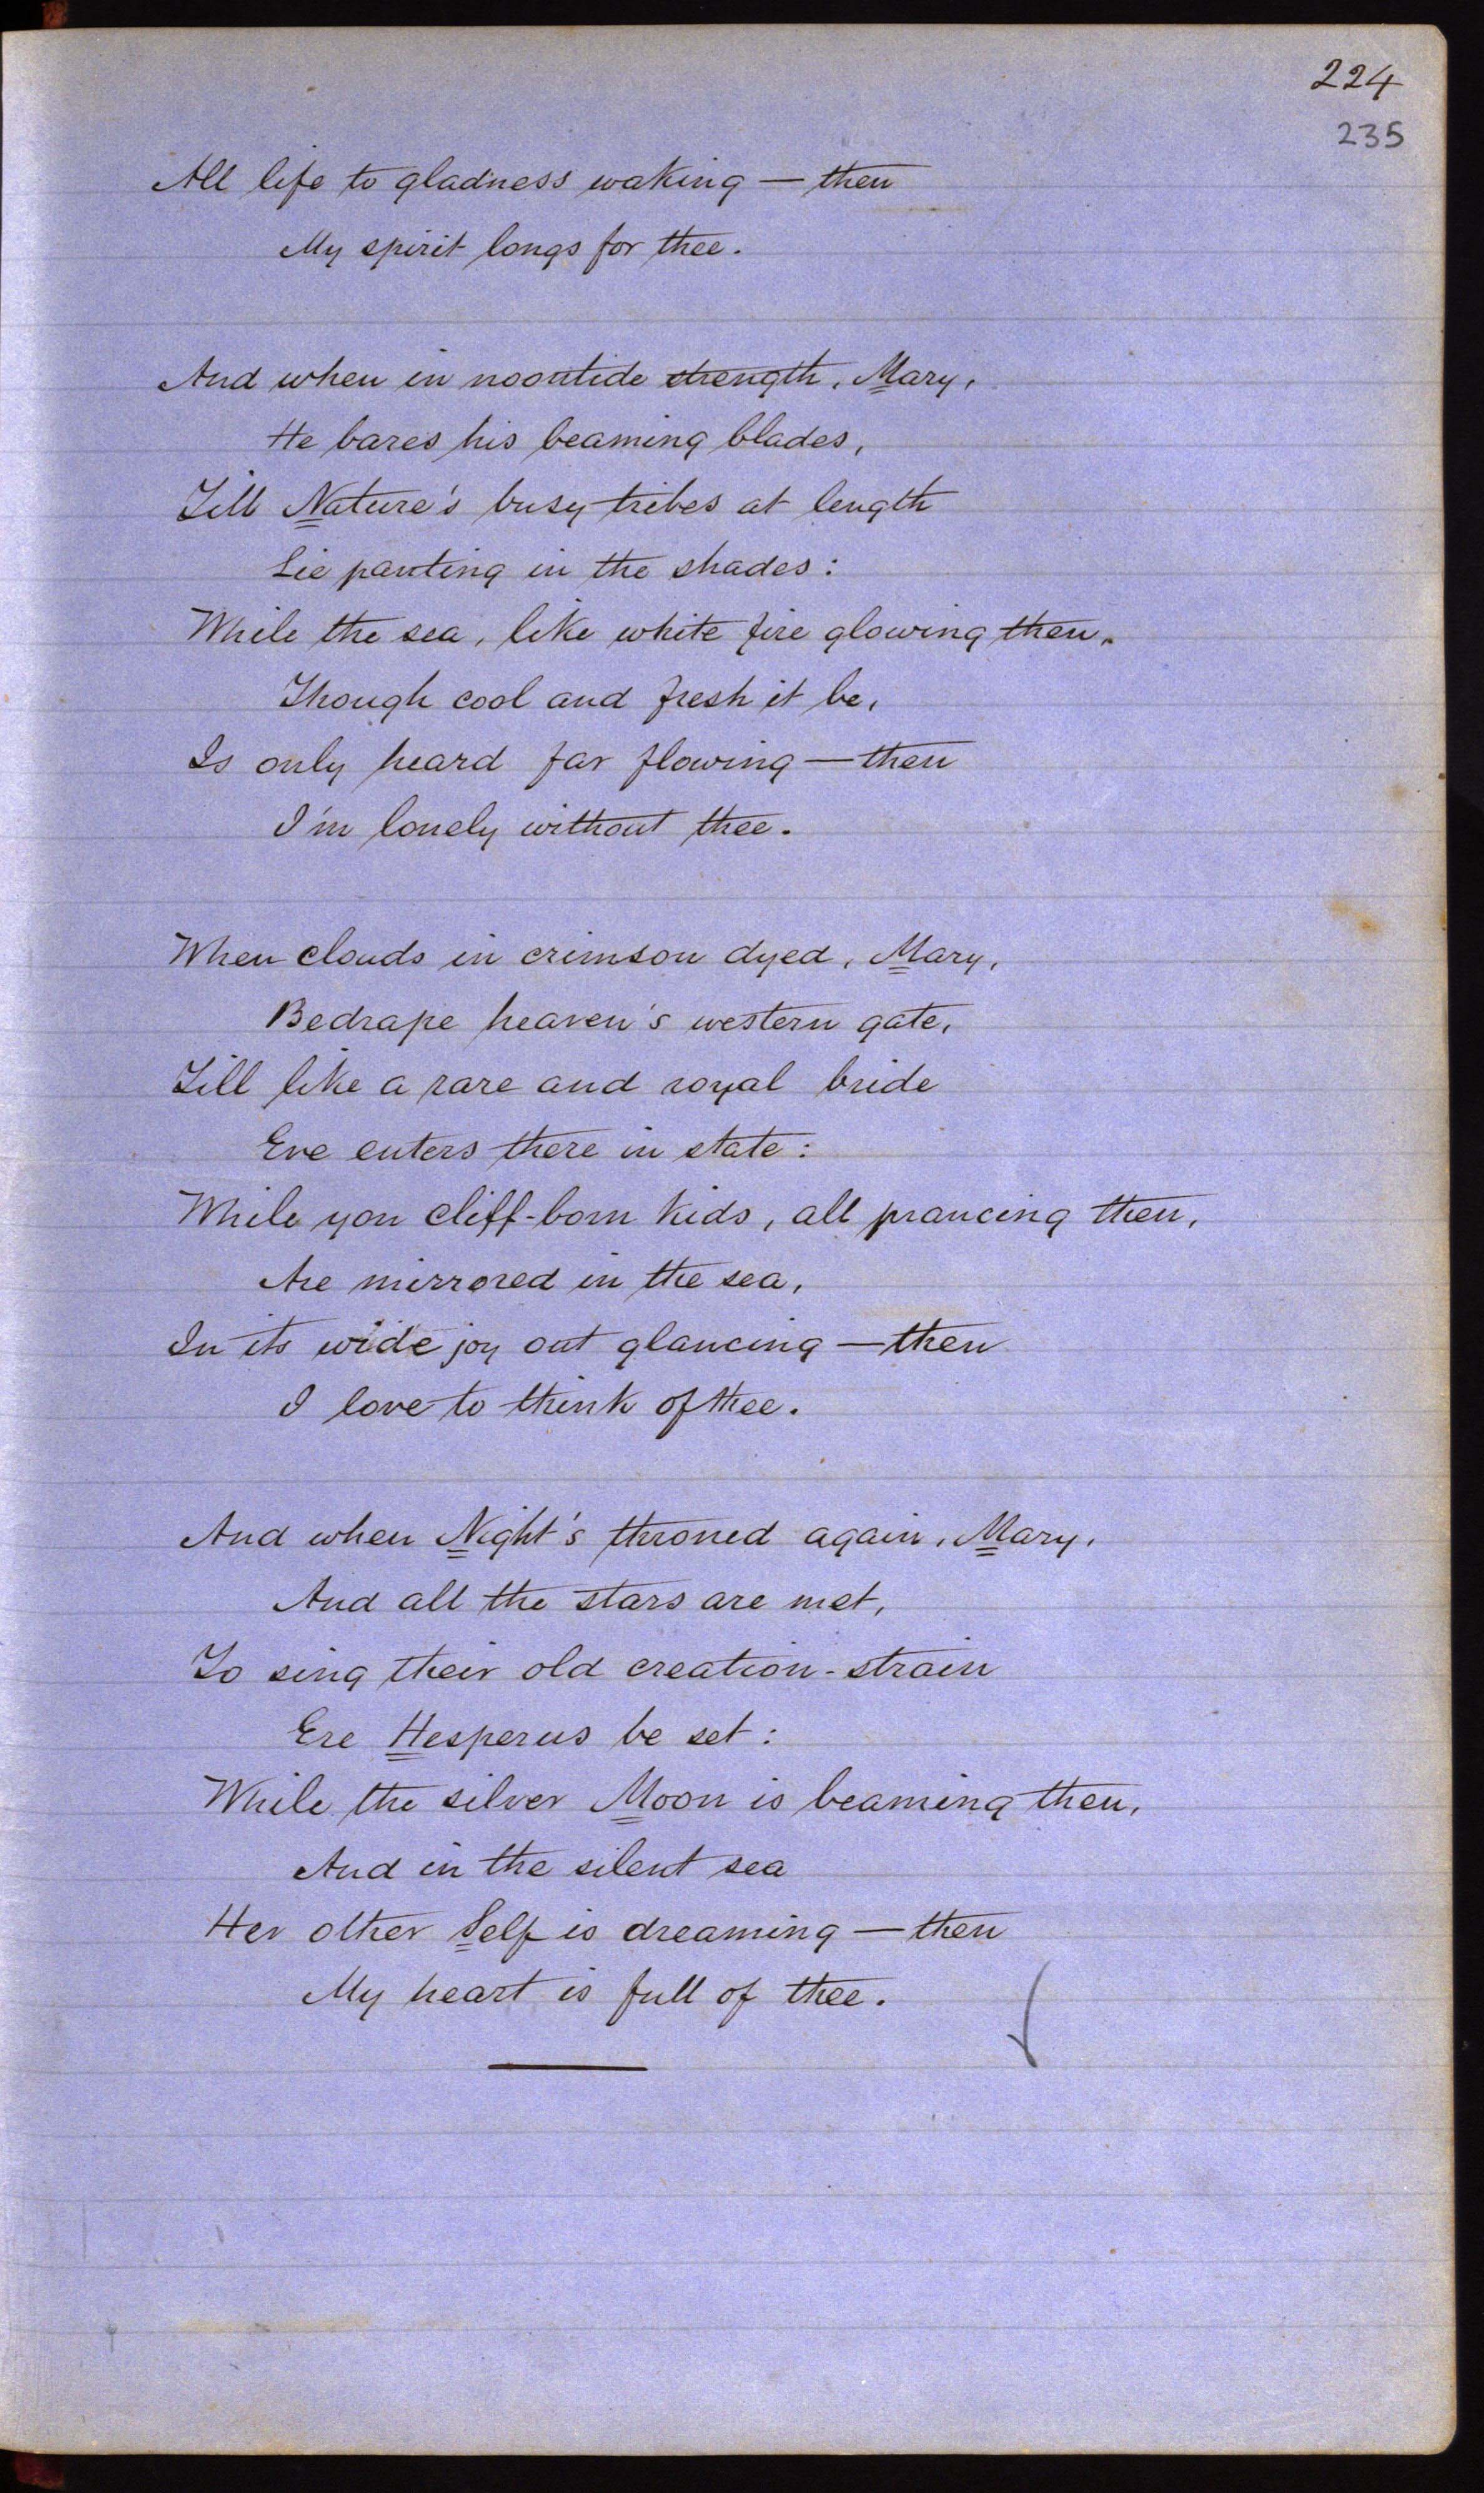 224
235
All life to gladness waking — then
My spirit longs for thee.
And when in noontide strength, Mary,
He bares his beaming blades,
Till Nature's busy tribes at length
Lie panting in the shades:
While the sea, like white fire glowing then,
Though cool and fresh it be,
Is only heard far flowing — then
I'm lonely without thee.
When clouds in crimson dyed, Mary,
Bedrape heaven's western gate,
Till like a rare and royal bride
Eve enters there in state:
While yon cliff-born kids, all prancing then,
Are mirrored in the sea,
In its wide joy out glancing — then
I love to think of thee.
And when Night's throned again, Mary,
And all the stars are met,
To sing their old creation-strain
Ere Hesperus be set:
While the silver Moon is beaming then,
And in the silent sea
Her other Self is dreaming — then
My heart is full of thee.